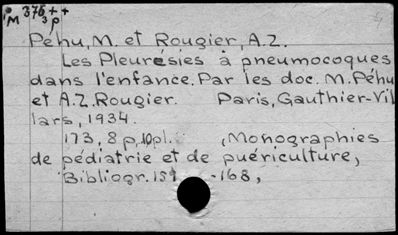 M 376++
3p
Pehu, M. et Rougier, A.Z.
Les Pleurésies à pneumocoques
dans l'enfance. Par les doc. M. Péhu
et A.Z. Rougier. Paris, Gauthier-Vil
lars, 1934.
173, 8 p, 10pl. (Monographies
de pédiatrie et de puériculture,
Bibliogr. 151 -168,